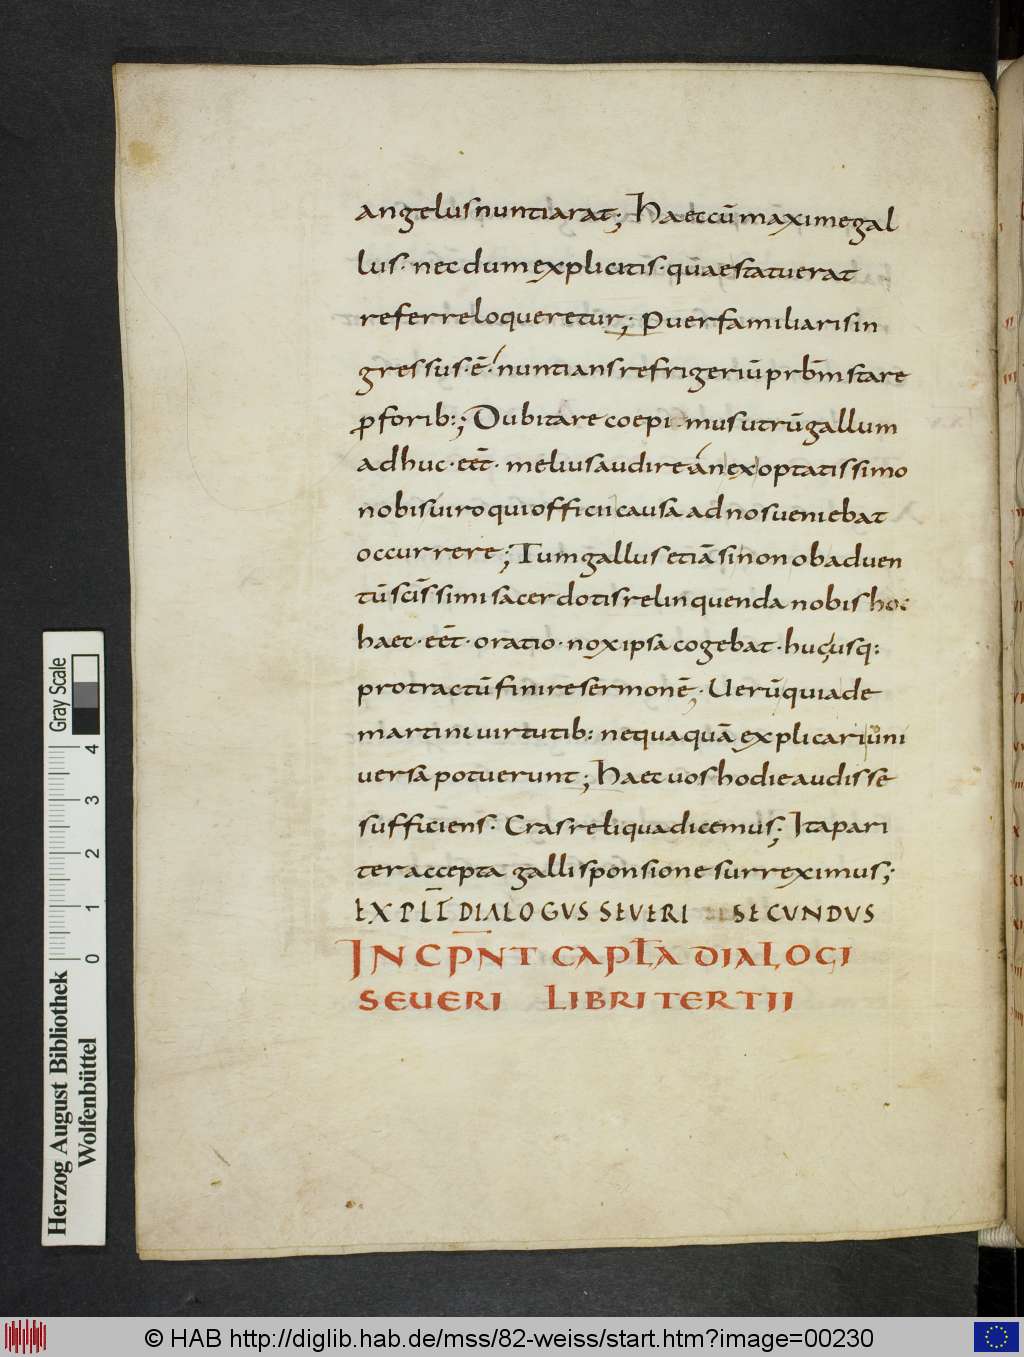 angelus nuntiarat; Haec cū maxime gal
lus· necdum explicitis· quae statuerat
referre loqueretur; Puer familiaris in
gressus·ē· nuntians refrigeriū prbm̄ stare
p̄ forib:; Dubitare coepimus utrū gallum
adhuc·eēt· melius audire án exoptatissimo
nobis uiro qui officii causa ad nos ueniebat
occurrere; Tum gallus etiā si non ob aduen
tū scīssimi sacerdotis relinquenda nobis hoc
haec·eēt· oratio· nox ipsa cogebat· hucusq:
protractū finire sermonē· Uerū quia de
martini uirtutib: nequaquā explicari uni
uersa potuerunt; Haec uos hodie audisse
sufficiens· Cras reliqua dicemus; Ita pari
ter accepta galli sponsione surreximus;
EXPLĪT DIALOGUS SEUERI SECUNDUS
INCPN̄T CAPLĀ DIALOGI
SEUERI LIBRI TERTII
Gray Scale
4
3
2
1
0
Herzog August Bibliothek
Wolfenbüttel
© HAB http://diglib.hab.de/mss/82-weiss/start.htm?image=00230